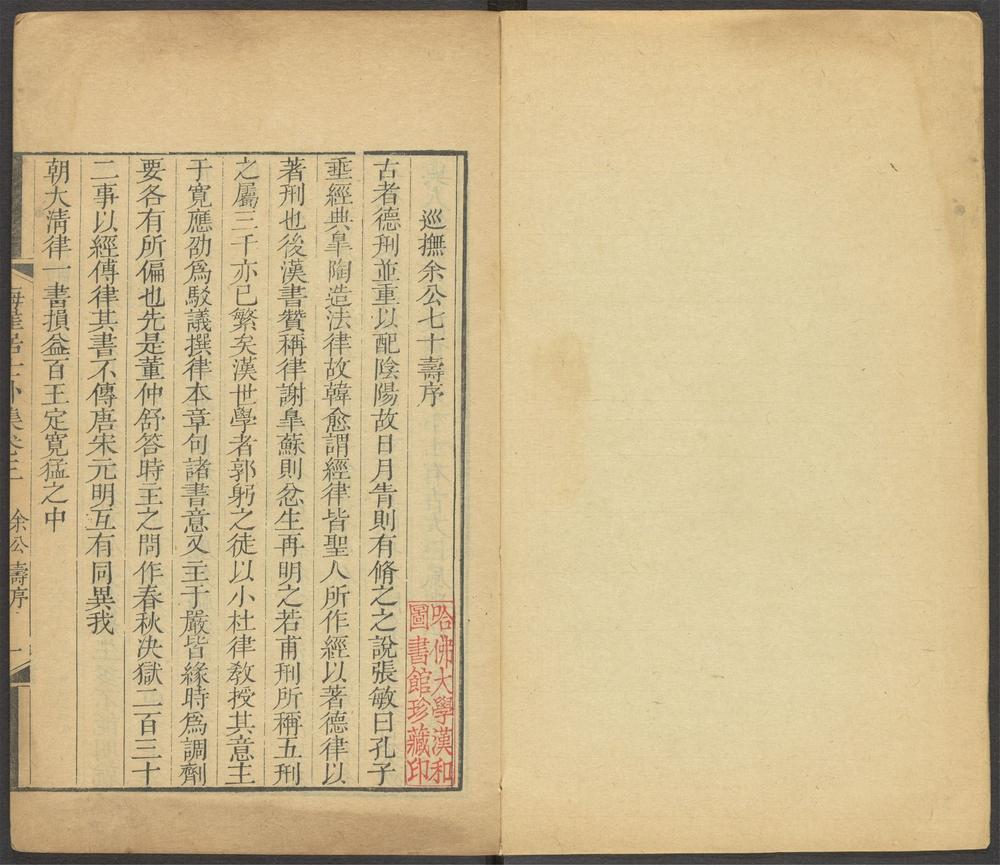 巡撫余公七十壽序
古者德刑並重以配陰陽故日月眚則有脩之之說張敏曰孔子
垂經典臯陶造法律故韓愈謂經律皆聖人所作經以著德律以
著刑也後漢書贊稱律謝臯蘇則忿生再明之若甫刑所稱五刑
之屬三千亦已繁矣漢世學者郭躬之徒以小杜律教授其意主
于寛應劭爲駁議撰律本章句諸書意又主于嚴皆緣時爲調劑
要各有所偏也先是董仲舒答時王之問作春秋决獄二百三十
二事以經傅律其書不傳唐宋元明互有同異我
朝大淸律一書損益百王定寛猛之中
居士外集卷三 余公壽序 一
哈佛大學漢和
圖書館珍藏印